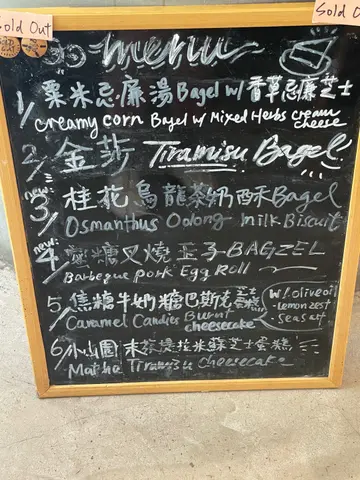 Sold Out
Sold O
menu
1/ 粟米忌廉湯Bagel w/ 香草忌廉芝士
Creamy corn Bagel w/ Mixed Herbs cream cheese
2/ 金莎 Tiramisu Bagel
new!
3/ 桂花烏龍茶奶酥Bagel
Osmanthus Oolong milk Biscuit
new!
4/ 蜜糖叉燒玉子BAGZEL
Barbeque pork Egg Roll
5/ 焦糖牛奶糖巴斯克芝士蛋糕
Caramel Candies Burnt cheesecake
w/ olive oil
- lemon zest
- sea salt
6/ 小山園 末茶提拉米蘇芝士蛋糕
Matcha Tiramisu Cheesecake